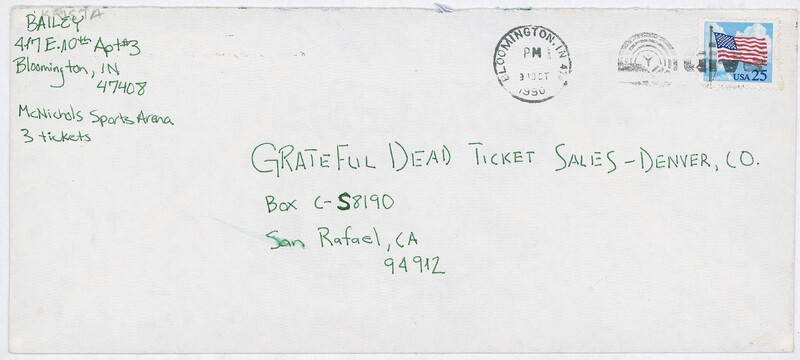 KRISTA
BAILEY
417 E. 10th Apt #3
Bloomington, IN
47408
McNichols Sports Arena
3 tickets
BLOOMINGTON, IN 474
PM
OCT
1990
USA 25
GRATEFUL DEAD TICKET SALES - DENVER, CO.
Box C-S8190
San Rafael, CA
94912